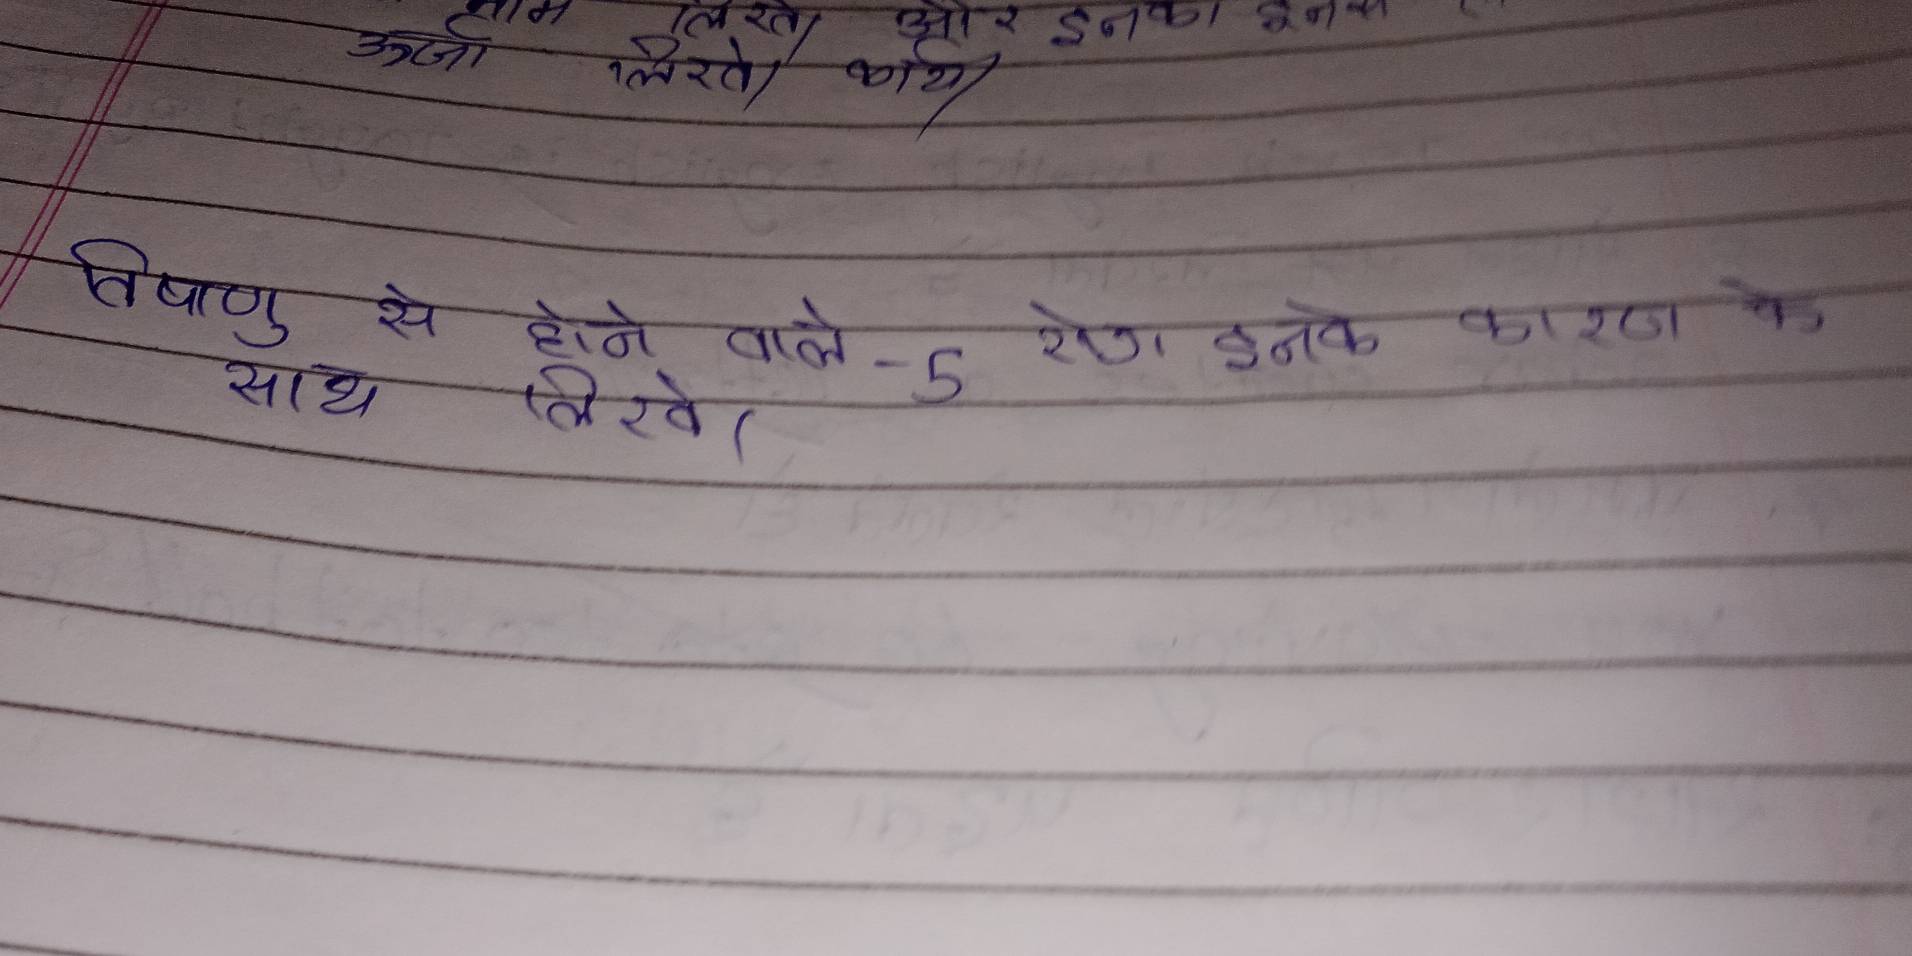 नाम लिखे, और इनका इनके
ऊर्जा लिखे, कार्य,
विषाणु से होने वाले - 5 रोग इनके कारण के
साथ लिखे।